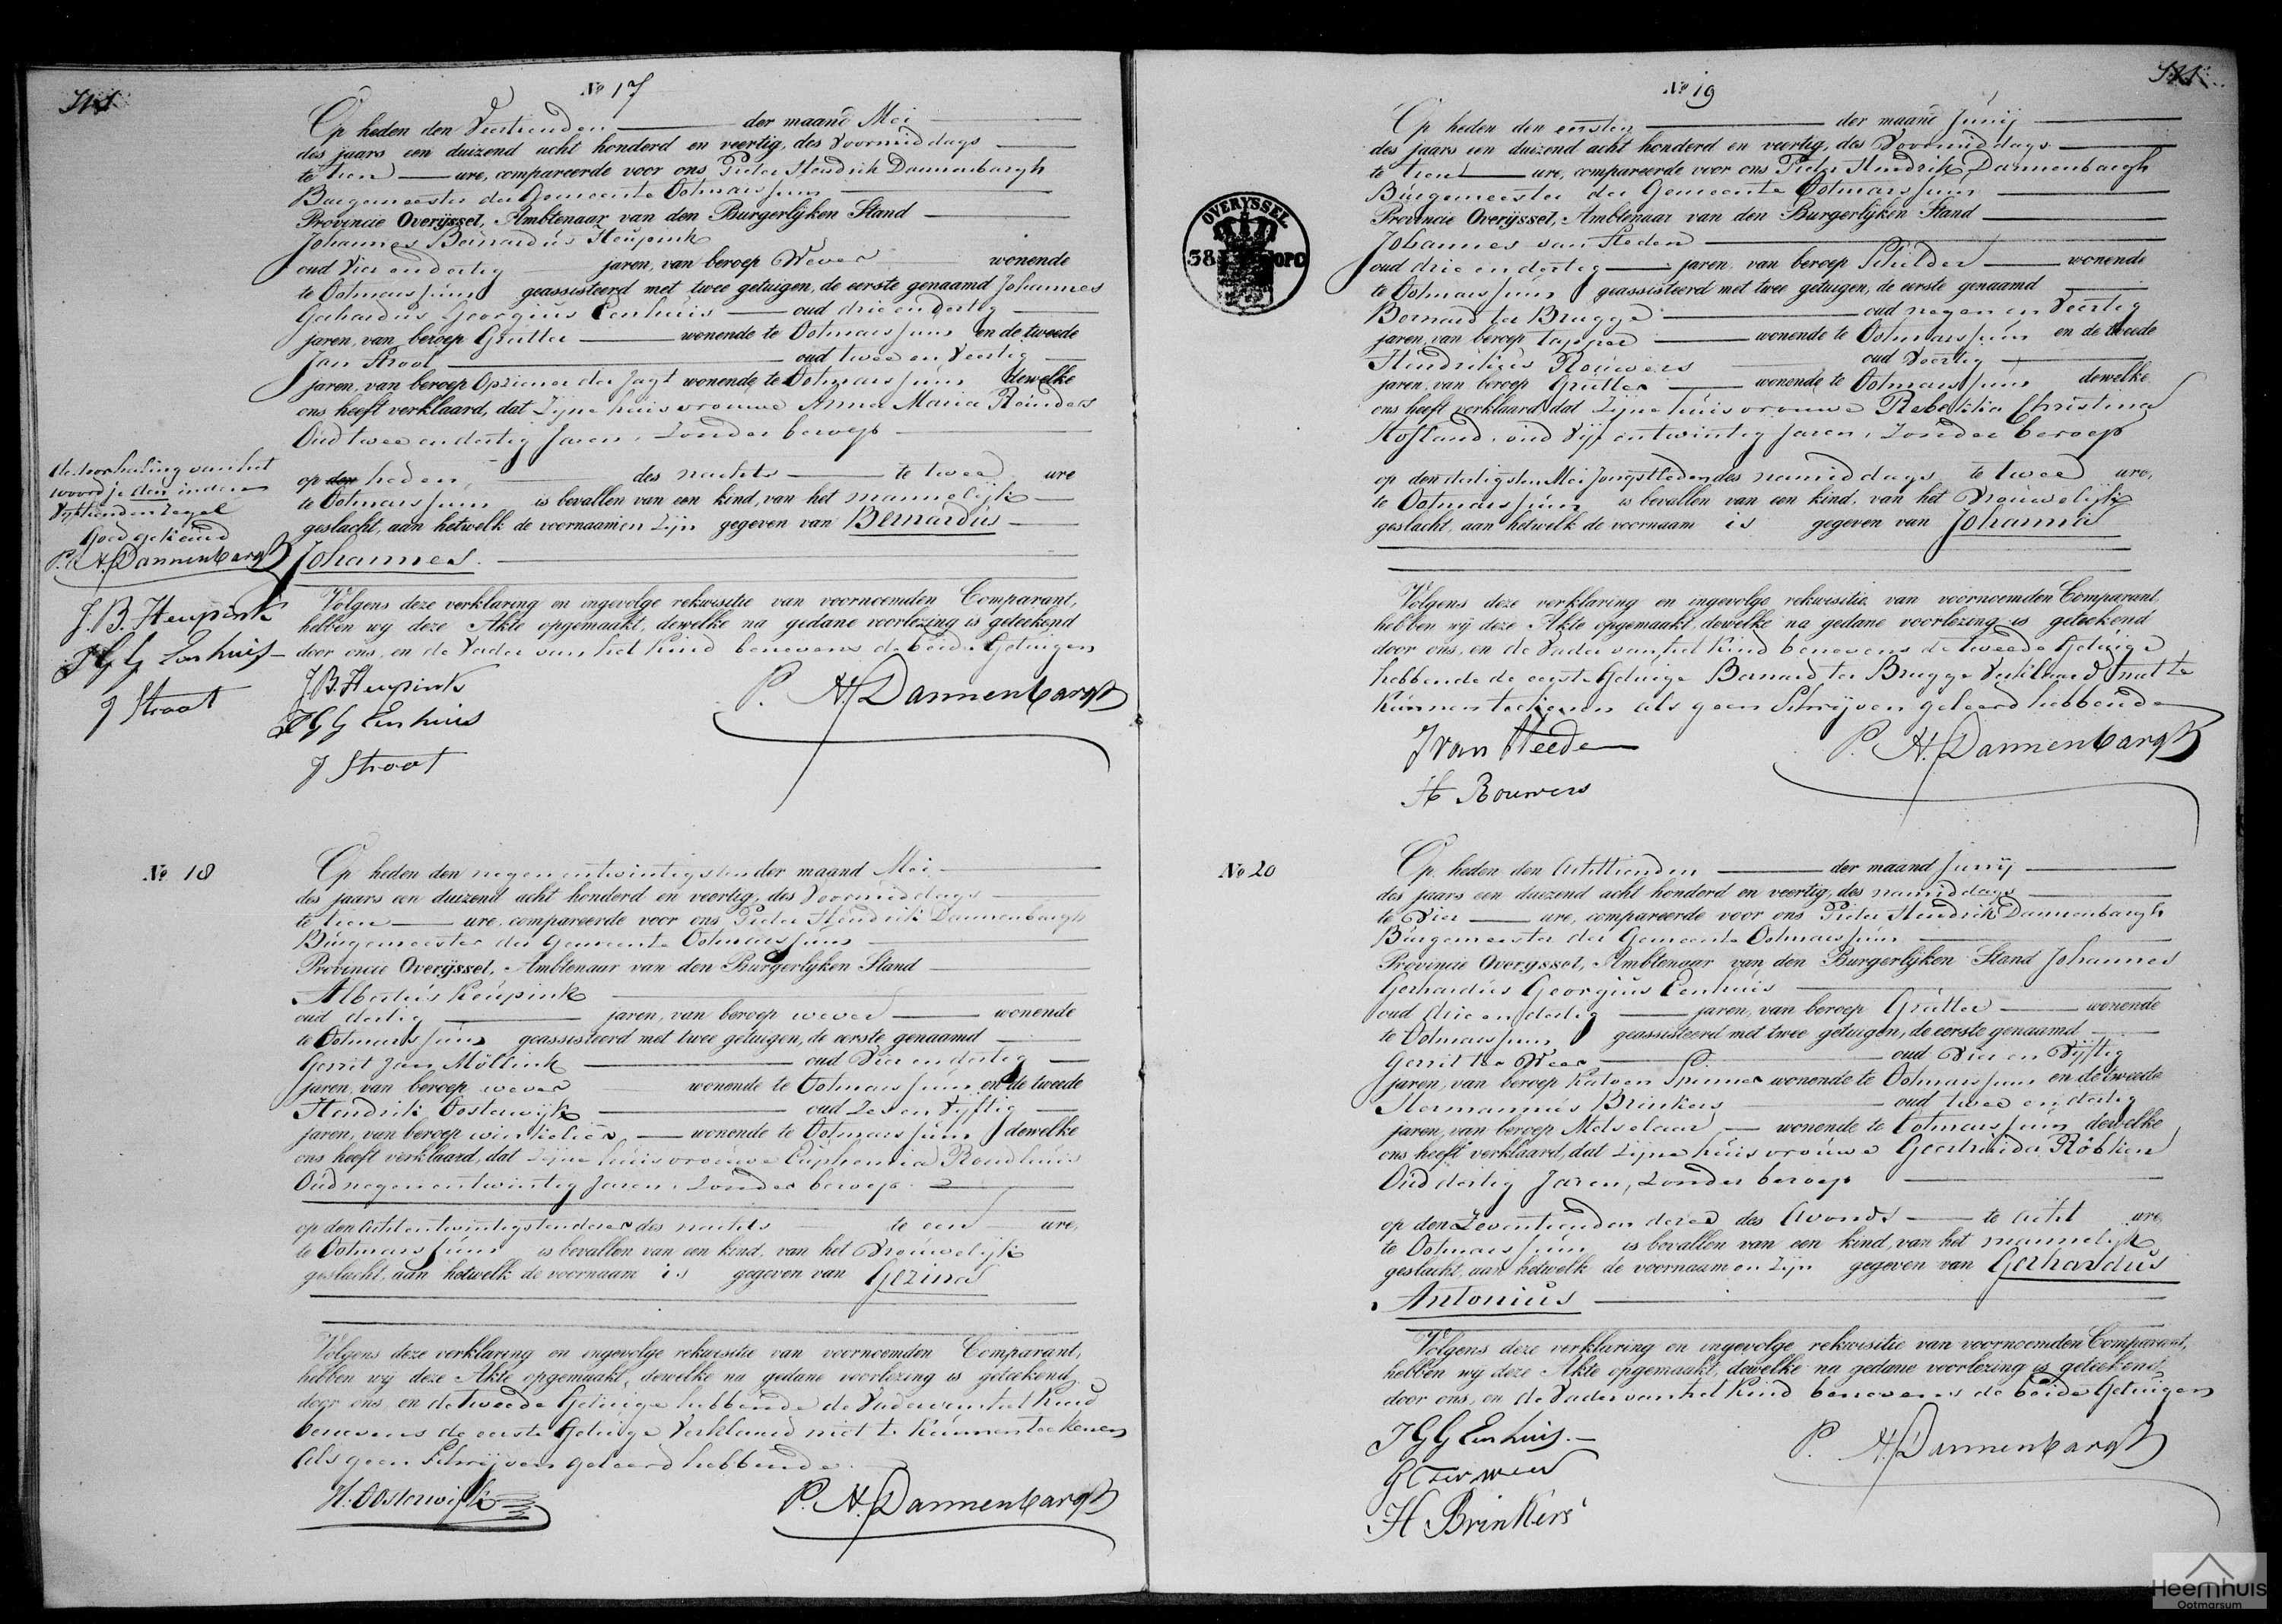 № 17
Op heden den Veertienden der maand Mei
des jaars een duizend acht honderd en veertig, des Voormiddags
te tien ure, compareerde voor ons Pieter Hendrik Dannenbargh
Burgemeester der Gemeente Ootmarssum
Provincie Overijssel, Ambtenaar van den Burgerlijken Stand
Johannes Bernardus Heupink
oud Vier en dertig jaren, van beroep Wever wonende
te Ootmarssum geassisteerd met twee getuigen, de eerste genaamd Johannes
Gerhardus Georgius Eenhuis oud drie en dertig
jaren, van beroep Grutter wonende te Ootmarssum en de tweede
Jan Stroot oud twee en Veertig
jaren, van beroep Opziener der Jagt wonende te Ootmarssum dewelke
ons heeft verklaard, dat Zijne huisvrouwe Anna Maria Reinders
Oud twee en dertig Jaren, Zonder beroep
op den heden, des nachts te twee ure
te Ootmarssum is bevallen van een kind, van het mannelijk
geslacht, aan hetwelk de voornaamen Zijn gegeven van Bernardus
Johannes.
Volgens deze verklaring en ingevolge rekwisitie van voornoemden Comparant,
hebben wij deze Akte opgemaakt, dewelke na gedane voorlezing is geteekend
door ons, en de Vader van het Kind benevens de beide Getuigen
J.B. Heupink
P. H. Dannenbargh
J G G Eenhuis
J Stroot
de doorhaling van het
woordje den in den
Vijftienden regel
Goedgekeurd
P. H. Dannenbargh
J. B. Heupink
J G G Eenhuis
J Stroot
№ 18
Op heden den negenentwintigsten der maand Mei
des jaars een duizend acht honderd en veertig, des Voormiddags
te tien ure, compareerde voor ons Pieter Hendrik Dannenbargh
Burgemeester der Gemeente Ootmarssum
Provincie Overijssel, Ambtenaar van den Burgerlijken Stand
Albertus Keupink
oud dertig jaren, van beroep wever wonende
te Ootmarssum geassisteerd met twee getuigen, de eerste genaamd
Gerrit Jan Möllink oud Vier en dertig
jaren, van beroep wever wonende te Ootmarssum en de tweede
Hendrik Oosterwijk oud Zes en Vijftig
jaren, van beroep winkelier wonende te Ootmarssum dewelke
ons heeft verklaard, dat Zijne huisvrouwe Euphemia Rondhuis
Oud negenentwintig Jaren, Zonder beroep
op den Achtentwintigsten dezer des nachts te een ure,
te Ootmarssum is bevallen van een kind, van het Vrouwelijk
geslacht, aan hetwelk de voornaam is gegeven van Gezina
Volgens deze verklaring en ingevolge rekwisitie van voornoemden Comparant,
hebben wij deze Akte opgemaakt, dewelke na gedane voorlezing is geteekend
door ons, en de Tweede Getuige hebbende de Vader van het Kind
benevens de eerste Getuige Verklaard niet te Kunnen teekenen
Als geen Schrijven geleerd hebbende
H. Oosterwijk
P. H. Dannenbargh
№ 19
Op heden den eersten der maand Junij
des jaars een duizend acht honderd en veertig, des Voormiddags
te tien ure, compareerde voor ons Pieter Hendrik Dannenbargh
Burgemeester der Gemeente Ootmarssum
Provincie Overijssel, Ambtenaar van den Burgerlijken Stand
Johannes van Steden
oud drie en dertig jaren, van beroep Schilder wonende
te Ootmarssum geassisteerd met twee getuigen, de eerste genaamd
Bernard ter Brugge oud negen en Veertig
jaren, van beroep tapper wonende te Ootmarssum en de tweede
Hendrikus Rouwers oud Veertig
jaren, van beroep Grutter wonende te Ootmarssum dewelke
ons heeft verklaard, dat Zijne huisvrouwe Rebekka Christina
Hofland, oud Vijf entwintig Jaren, Zonder beroep
op den dertigsten Mei Jongstleden des namiddags te twee ure,
te Ootmarssum is bevallen van een kind, van het Vrouwelijk
geslacht, aan hetwelk de voornaam is gegeven van Johanna
Volgens deze verklaring en ingevolge rekwisitie van voornoemden Comparant,
hebben wij deze Akte opgemaakt, dewelke na gedane voorlezing is geteekend
door ons, en de Vader van het Kind benevens de tweede Getuige
hebbende de eerste Getuige Bernard ter Brugge Verklaard niet te
Kunnen teekenen als geen Schrijven geleerd hebbende
J van Steeden
P. H. Dannenbargh
H Rouwers
OVERYSSEL
38 OPC
№ 20
Op heden den Achttienden der maand Junij
des jaars een duizend acht honderd en veertig, des namiddags
te Vier ure, compareerde voor ons Pieter Hendrik Dannenbargh
Burgemeester der Gemeente Ootmarssum
Provincie Overijssel, Ambtenaar van den Burgerlijken Stand Johannes
Gerhardus Georgius Eenhuis
oud drie en dertig jaren, van beroep Grutter wonende
te Ootmarssum geassisteerd met twee getuigen, de eerste genaamd
Gerrit ter Weer oud Vier en Vijftig
jaren, van beroep Katoen Spinner wonende te Ootmarssum en de tweede
Hermannus Brinkers oud twee en dertig
jaren, van beroep Metselaar wonende te Ootmarssum dewelke
ons heeft verklaard, dat Zijne huisvrouwe Geertruida Röbken
Oud dertig Jaren, Zonder beroep
op den Zeventienden dezer des Avonds te Acht ure,
te Ootmarssum is bevallen van een kind, van het mannelijk
geslacht, aan hetwelk de voornaamen Zijn gegeven van Gerhardus
Antonius
Volgens deze verklaring en ingevolge rekwisitie van voornoemden Comparant,
hebben wij deze Akte opgemaakt, dewelke na gedane voorlezing is geteekend
door ons, en de Vader van het Kind benevens de beide Getuigen
J G G Eenhuis.
P. H. Dannenbargh
G Ter Weer
H Brinkers
Heemhuis
Ootmarsum